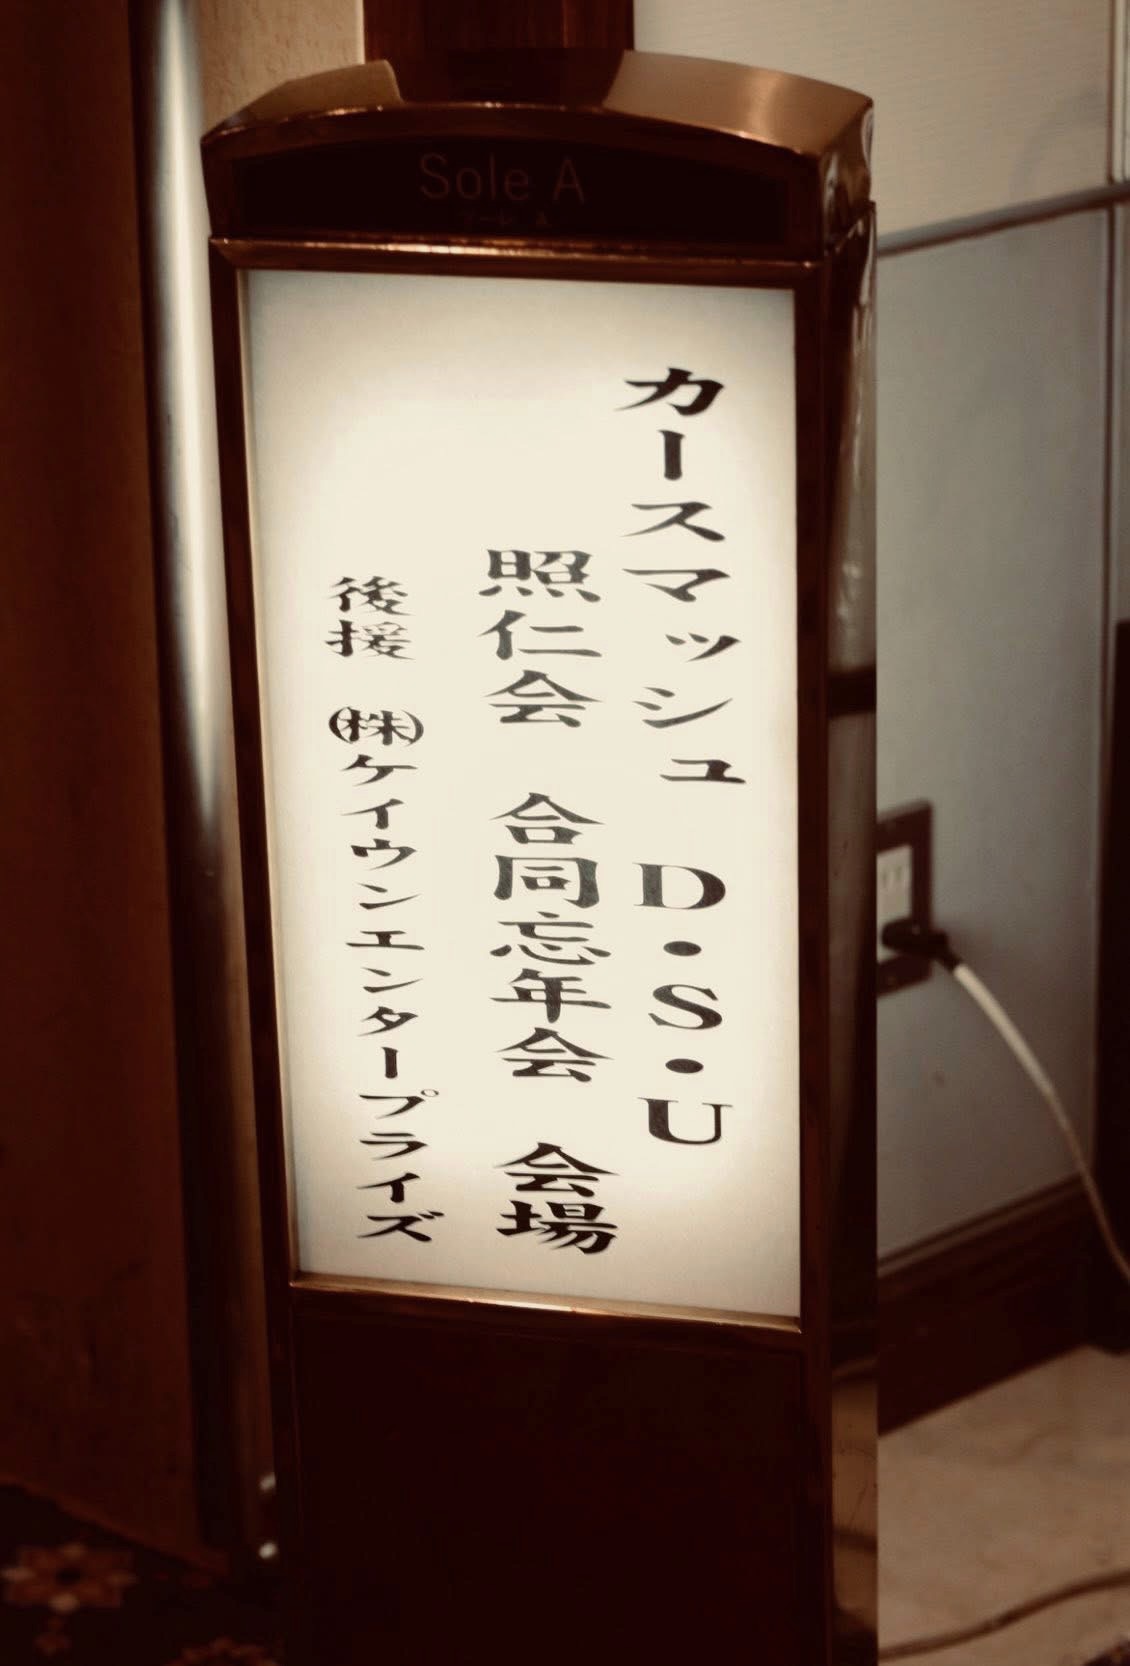 Sole A
ソーレ A
カースマッシュ D・S・U
照仁会 合同忘年会 会場
後援 ㈱ケイウンエンタープライズ